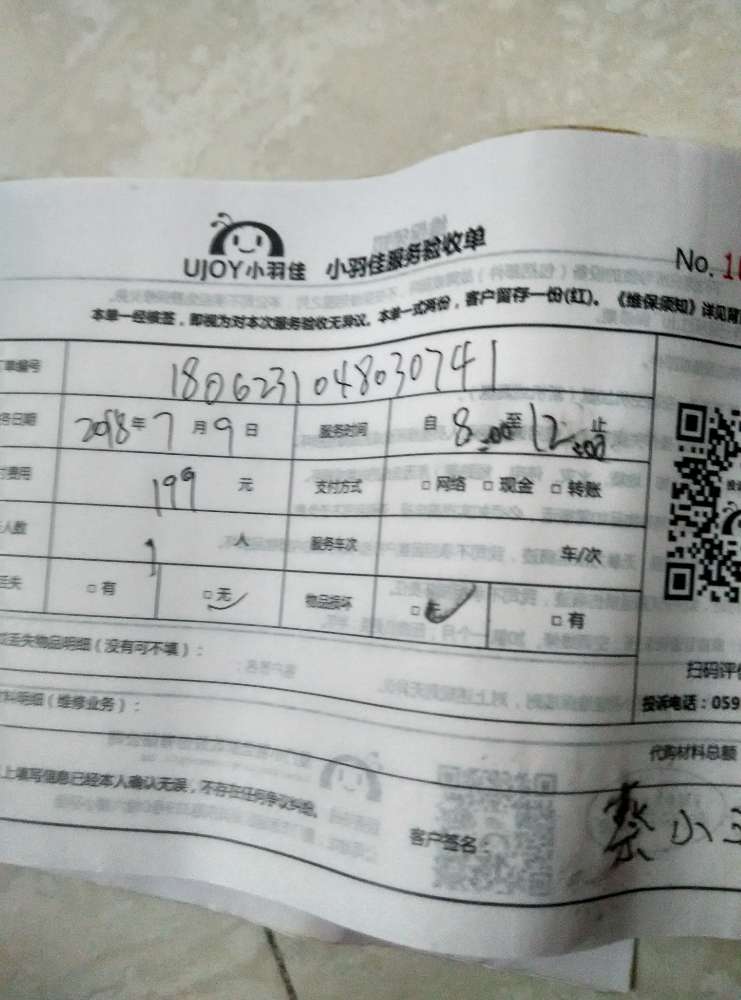 UJOY小羽佳 小羽佳服务验收单
No.1
本单一经缴签，即视为对本次服务验收无异议。本单一式两份，客户留存一份(红)。《维保须知》详见背
单编号 1806231048030741
务日期 2018年7月9日 服务时间 自8:00至12:00止
费用 199元 支付方式 □网络 □现金 □转账
人数 1人 服务车次 车/次
丢失 □有 □无 物品损坏 □无 □有
丢失物品明细（没有可不填）：
扫码评价
材料明细（维修业务）：
投诉电话：059
代购材料总额
上填写信息已经本人确认无误，不存在任何争议纠纷。
客户签名： 蔡小